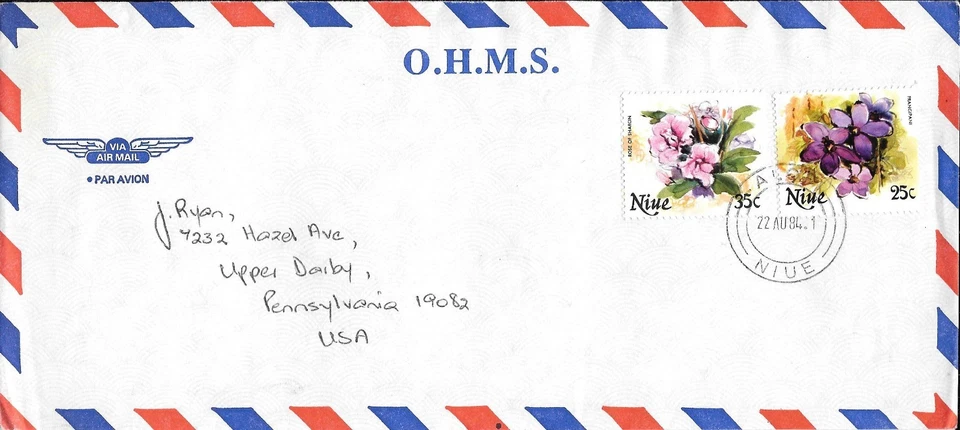 O.H.M.S.
VIA
AIR MAIL
• PAR AVION
ROSE OF SHARON
Niue
35c
FRANGIPANI
Niue
25c
22 AU 84.1
NIUE
J. Ryan,
7232 Hazel Ave,
Upper Darby,
Pennsylvania 19082
USA